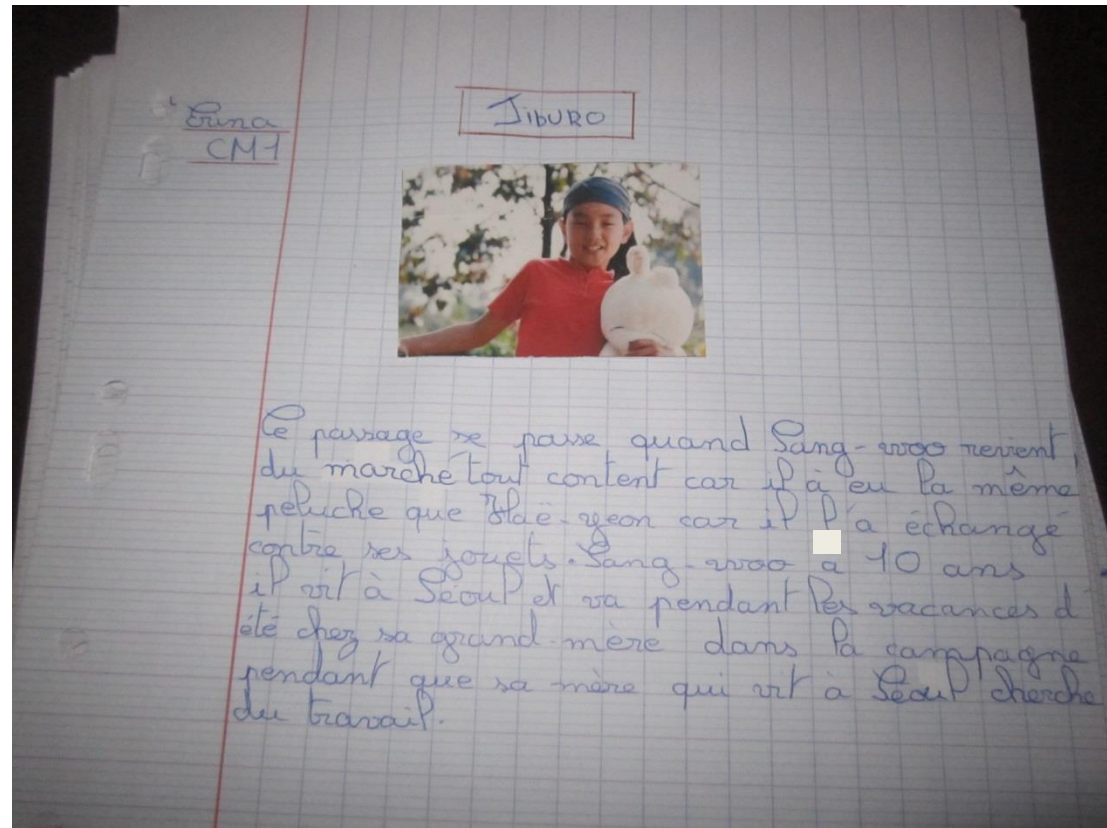 Erina
CM1
JIBURO
Ce passage se passe quand Sang-woo revient
du marché tout content car il à eu la même
peluche que Haë-yeon car il l'a échangé
contre ses jouets. Sang-woo a 10 ans
il vit à Séoul et va pendant les vacances d'
été chez sa grand-mère dans la campagne
pendant que sa mère qui vit à Séoul cherche
du travail.